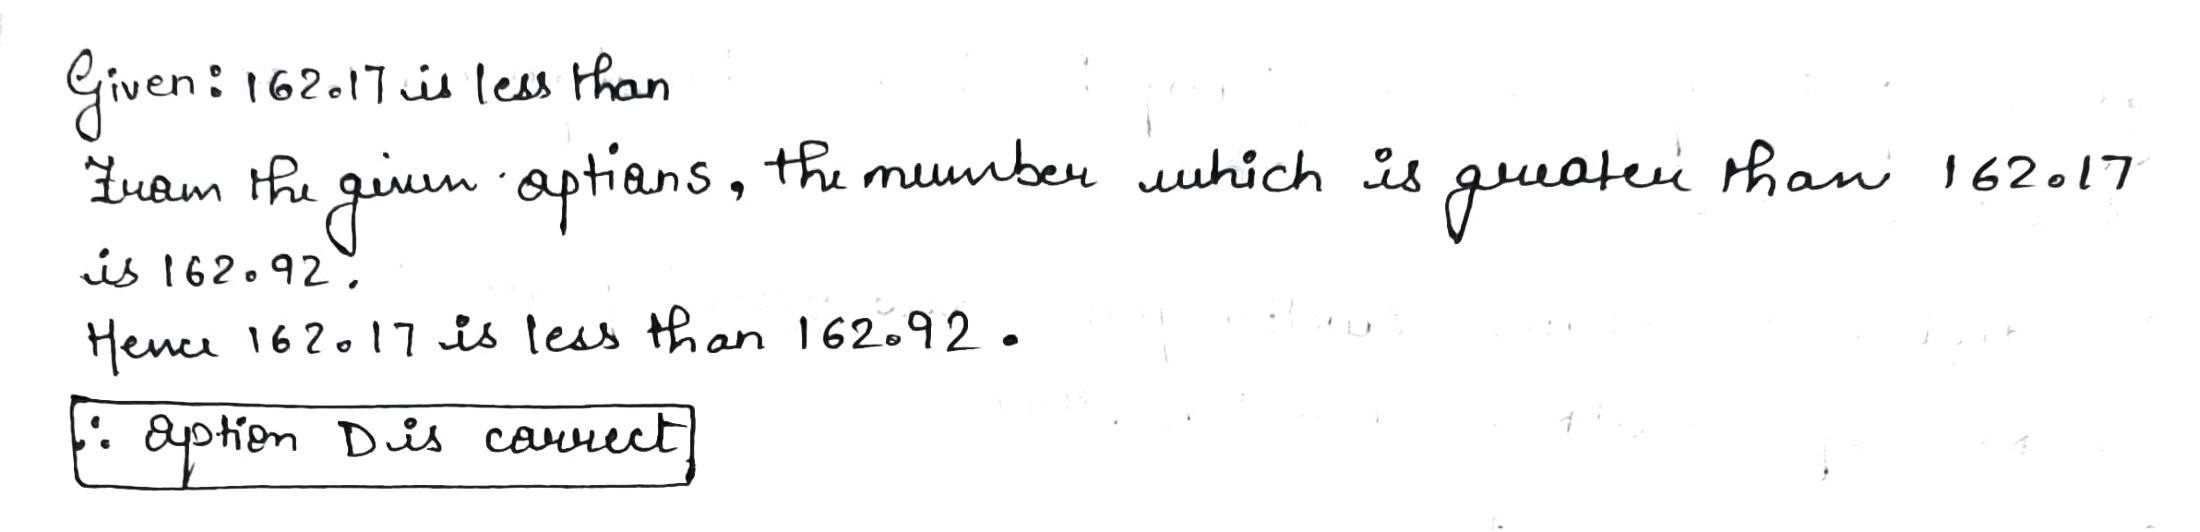 Given: 162.17 is less than
From the given options, the number which is greater than 162.17
is 162.92.
Hence 162.17 is less than 162.92.
∴ option D is correct